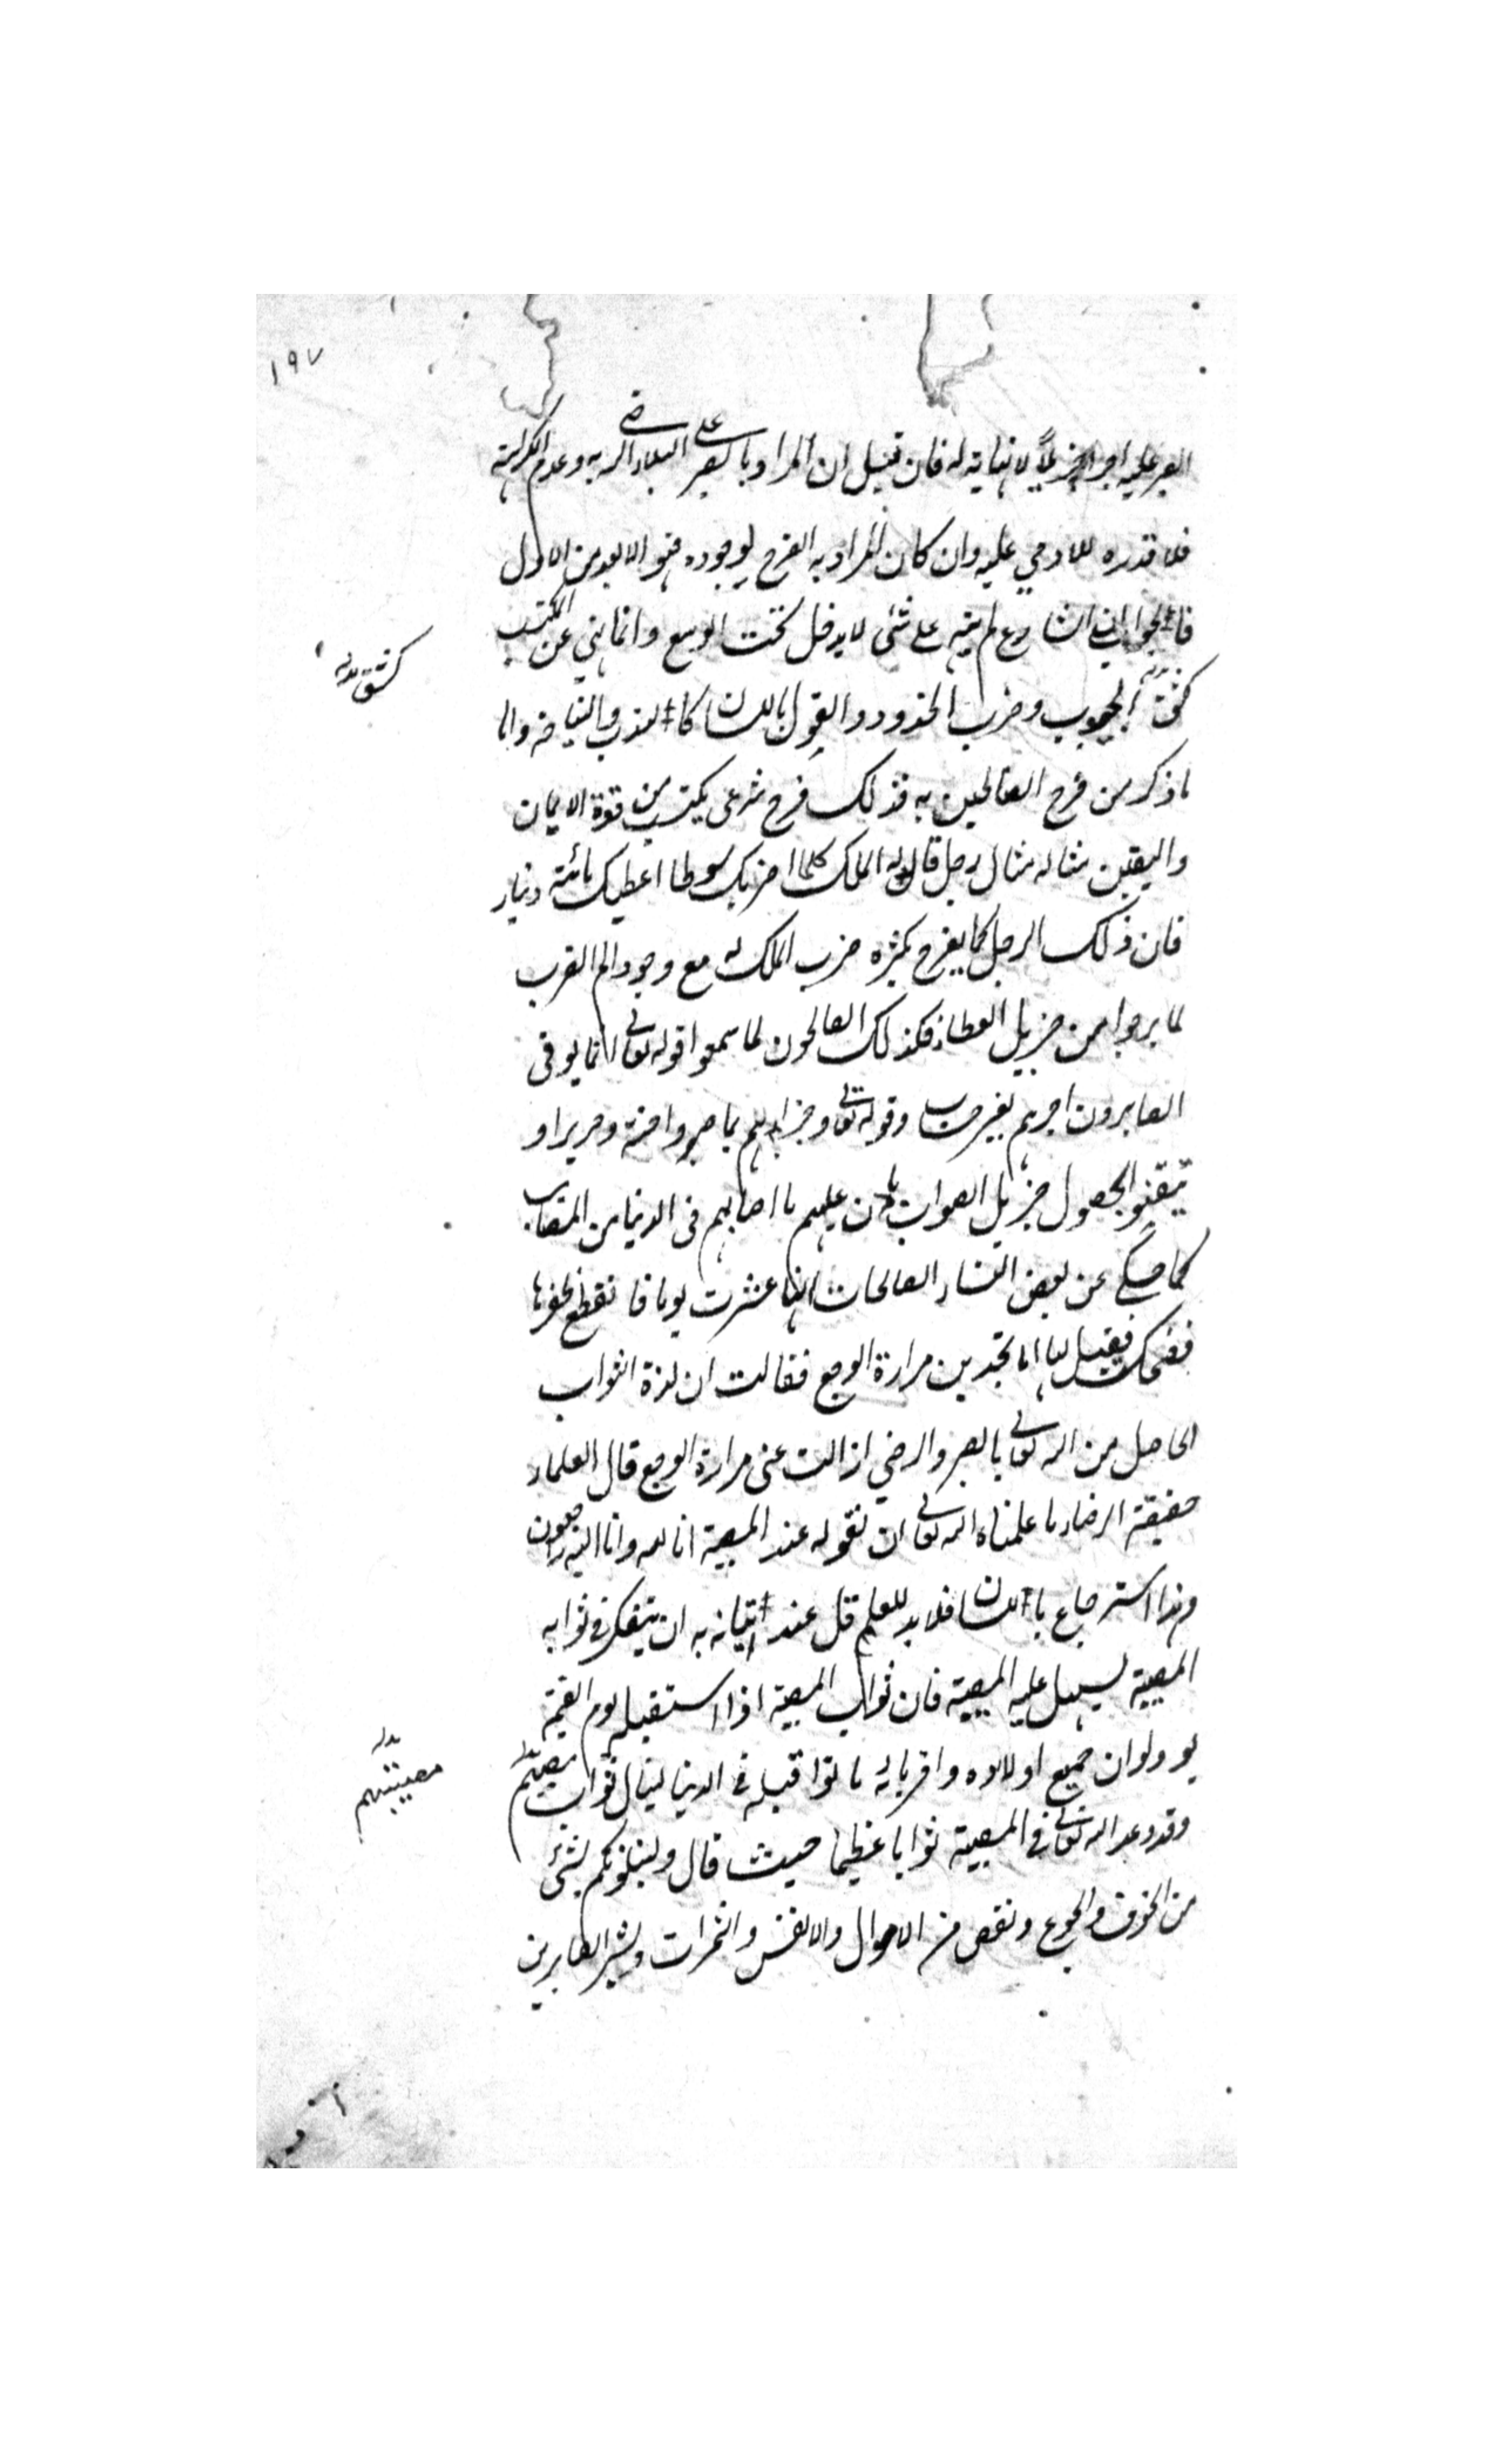 ١٩٧
الصبر عليه اجرا جزيلا لا نهاية له فان قيل ان المراد بالصبر على البلاء الرضى به وعدم الكراهة
فلا قدره للادمي عليه وان كان المراد به الفرح بوجوده فهو الابعد من الاول
فالجواب ان الشارع لم ينه على شئ لا يدخل تحت الوسع وانما نهي عن المكتسب
كشق الجيوب وضرب الخدود والقول باللسان كالندب والنياحة واما
كشق بدله
ما ذكر من فرح الصالحين به فذلك فرح شرعى يكتسب من قوة الايمان
واليقين مثاله مثال رجل قال له الملك كلما اضربك سوطا اعطيك مائة دينار
فان ذلك الرجل كما يفرح بكثره ضرب الملك له مع وجود الم الضرب
لما يرجوا من جزيل العطاء فكذلك الصالحون لما سمعوا قوله تعالى انما يوفى
الصابرون اجرهم بغير حساب وقوله تعالى وجزاهم بما صبروا جنة وحريرا و
تيقنوا بحصول جزيل الصواب هان عليهم ما اصابهم فى الدنيا من المصائب
كما حكى عن بعض النساء الصالحات انها عثرت يوما فانقطع ظفرها
فضحكت فقيل لها اما تجدين مرارة الوجع فقالت ان لذة الثواب
الحاصل من الله تعالى بالصبر والرضي ازالت عنى مرارة الوجع قال العلماء
حقيقة الرضاء ما علمناه الله تعالى ان نقوله عند المصيبة انا لله وانا اليه راجعون
وهذا استرجاع باللسان فلا بد للعلم قل عند اتيانه به ان يتفكر فى ثوابه
المصيبة ليسهل عليه المصيبة فان ثواب المصيبة اذا استقبله يوم القيمة
يود لو ان جميع اولاده واقربائه ماتوا قبله فى الدنيا لينال ثواب مصيبتهم
بدله
مصيبتهم
وقد وعد الله تعالى فى المصيبة ثوابا عظيما حيث قال ولنبلونكم بشئ
من الخوف والجوع ونقص من الاموال والانفس والثمرات وبشر الصابرين